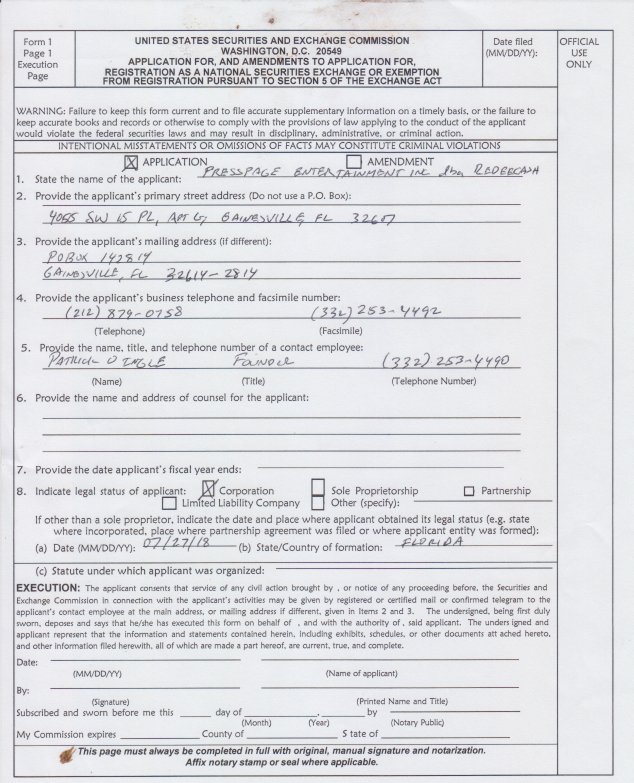 Form 1
Page 1
Execution
Page
UNITED STATES SECURITIES AND EXCHANGE COMMISSION
WASHINGTON, D.C. 20549
APPLICATION FOR, AND AMENDMENTS TO APPLICATION FOR,
REGISTRATION AS A NATIONAL SECURITIES EXCHANGE OR EXEMPTION
FROM REGISTRATION PURSUANT TO SECTION 5 OF THE EXCHANGE ACT
Date filed
(MM/DD/YY):
OFFICIAL
USE
ONLY
WARNING: Failure to keep this form current and to file accurate supplementary information on a timely basis, or the failure to
keep accurate books and records or otherwise to comply with the provisions of law applying to the conduct of the applicant
would violate the federal securities laws and may result in disciplinary, administrative, or criminal action.
INTENTIONAL MISSTATEMENTS OR OMISSIONS OF FACTS MAY CONSTITUTE CRIMINAL VIOLATIONS
X APPLICATION AMENDMENT
1. State the name of the applicant: PRESSPAGE ENTERTAINMENT INC dba REDEECASH
2. Provide the applicant's primary street address (Do not use a P.O. Box):
4055 SW 15 PL, APT G, GAINESVILLE, FL 32607
3. Provide the applicant's mailing address (if different):
PO BOX 142814
GAINESVILLE, FL 32614-2814
4. Provide the applicant's business telephone and facsimile number:
(212) 879-0758 (332) 253-4492
(Telephone) (Facsimile)
5. Provide the name, title, and telephone number of a contact employee:
PATRICK O INGLE FOUNDER (332) 253-4490
(Name) (Title) (Telephone Number)
6. Provide the name and address of counsel for the applicant:
7. Provide the date applicant's fiscal year ends:
8. Indicate legal status of applicant: X Corporation Sole Proprietorship Partnership
Limited Liability Company Other (specify):
If other than a sole proprietor, indicate the date and place where applicant obtained its legal status (e.g. state
where incorporated, place where partnership agreement was filed or where applicant entity was formed):
(a) Date (MM/DD/YY): 07/27/18 (b) State/Country of formation: FLORIDA
(c) Statute under which applicant was organized:
EXECUTION: The applicant consents that service of any civil action brought by , or notice of any proceeding before, the Securities and
Exchange Commission in connection with the applicant's activities may be given by registered or certified mail or confirmed telegram to the
applicant's contact employee at the main address, or mailing address if different, given in Items 2 and 3. The undersigned, being first duly
sworn, deposes and says that he/she has executed this form on behalf of , and with the authority of , said applicant. The unders igned and
applicant represent that the information and statements contained herein, including exhibits, schedules, or other documents att ached hereto,
and other information filed herewith, all of which are made a part hereof, are current, true, and complete.
Date:
(MM/DD/YY) (Name of applicant)
By:
(Signature) (Printed Name and Title)
Subscribed and sworn before me this day of , by
(Month) (Year) (Notary Public)
My Commission expires County of S tate of
This page must always be completed in full with original, manual signature and notarization.
Affix notary stamp or seal where applicable.